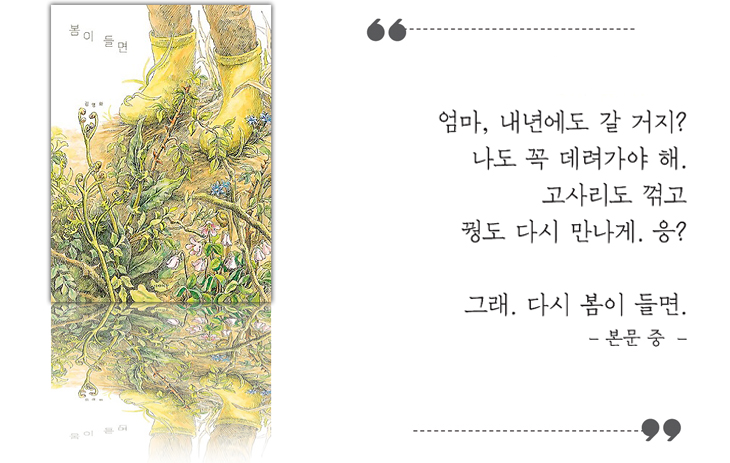 봄이 들면
김영화
“
엄마, 내년에도 갈 거지?
나도 꼭 데려가야 해.
고사리도 꺾고
꿩도 다시 만나게. 응?
그래. 다시 봄이 들면.
– 본문 중 –
”